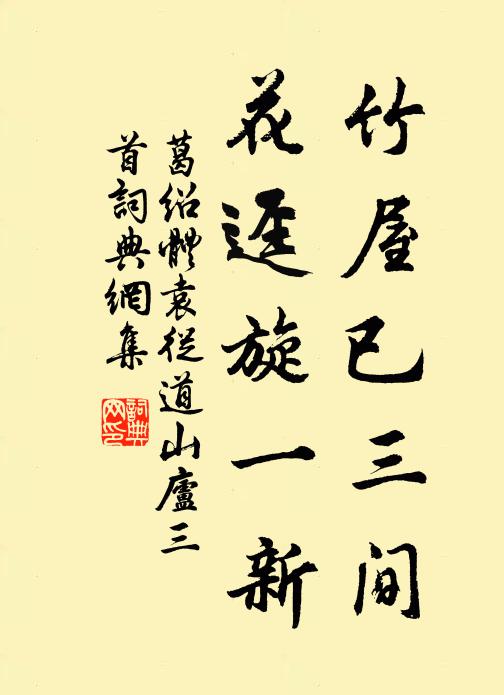 竹屋已三间
花逕旋一新
葛绍體袁從道山廬三
首詞典網集
詞典
网印